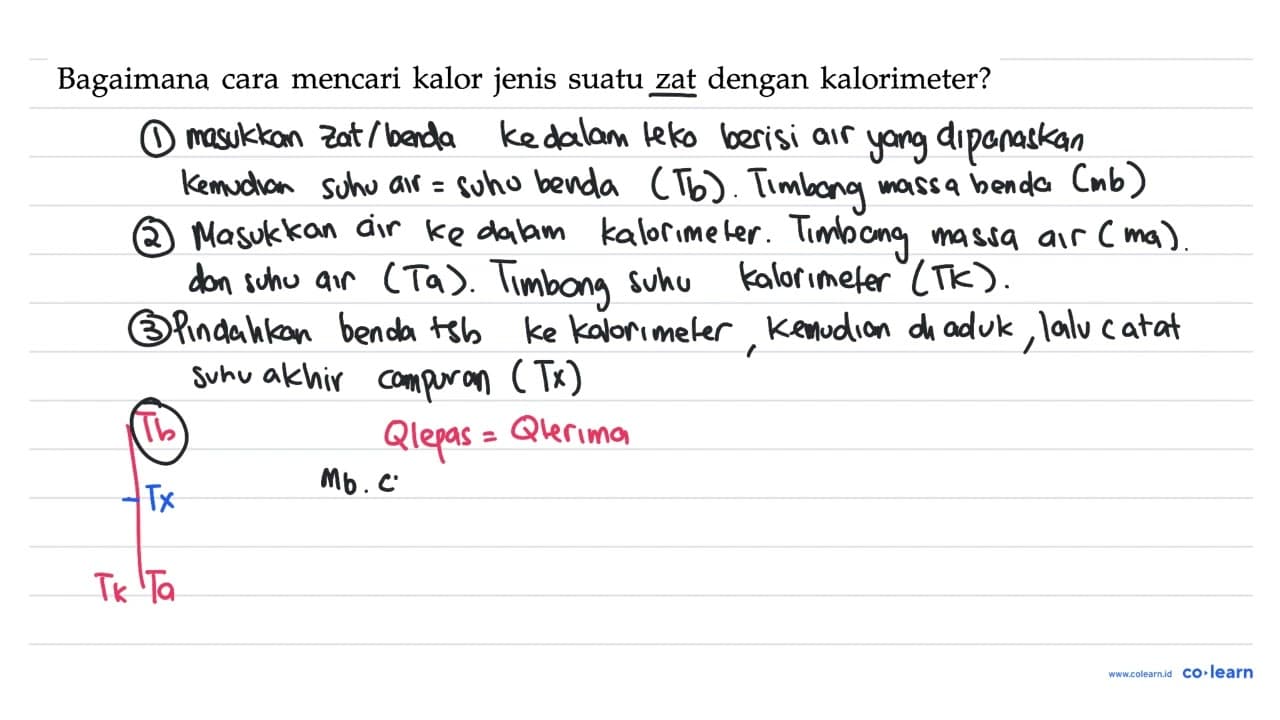 Bagaimana cara mencari kalor jenis suatu zat dengan kalorimeter?
① masukkan zat/benda kedalam teko berisi air yang dipanaskan
kemudian suhu air = suhu benda (Tb). Timbang massa benda (mb)
② Masukkan air ke dalam kalorimeter. Timbang massa air (ma).
dan suhu air (Ta). Timbang suhu kalorimeter (TK).
③ Pindahkan benda tsb ke kalorimeter, kemudian di aduk, lalu catat
suhu akhir campuran (Tx)
Tb
Qlepas = Qterima
Mb. c
Tx
Tk Ta
www.colearn.id co·learn